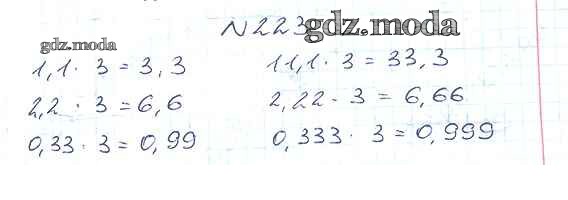 №223
gdz.moda
gdz.moda
1,1 · 3 = 3,3
2,2 · 3 = 6,6
0,33 · 3 = 0,99
11,1 · 3 = 33,3
2,22 · 3 = 6,66
0,333 · 3 = 0,999